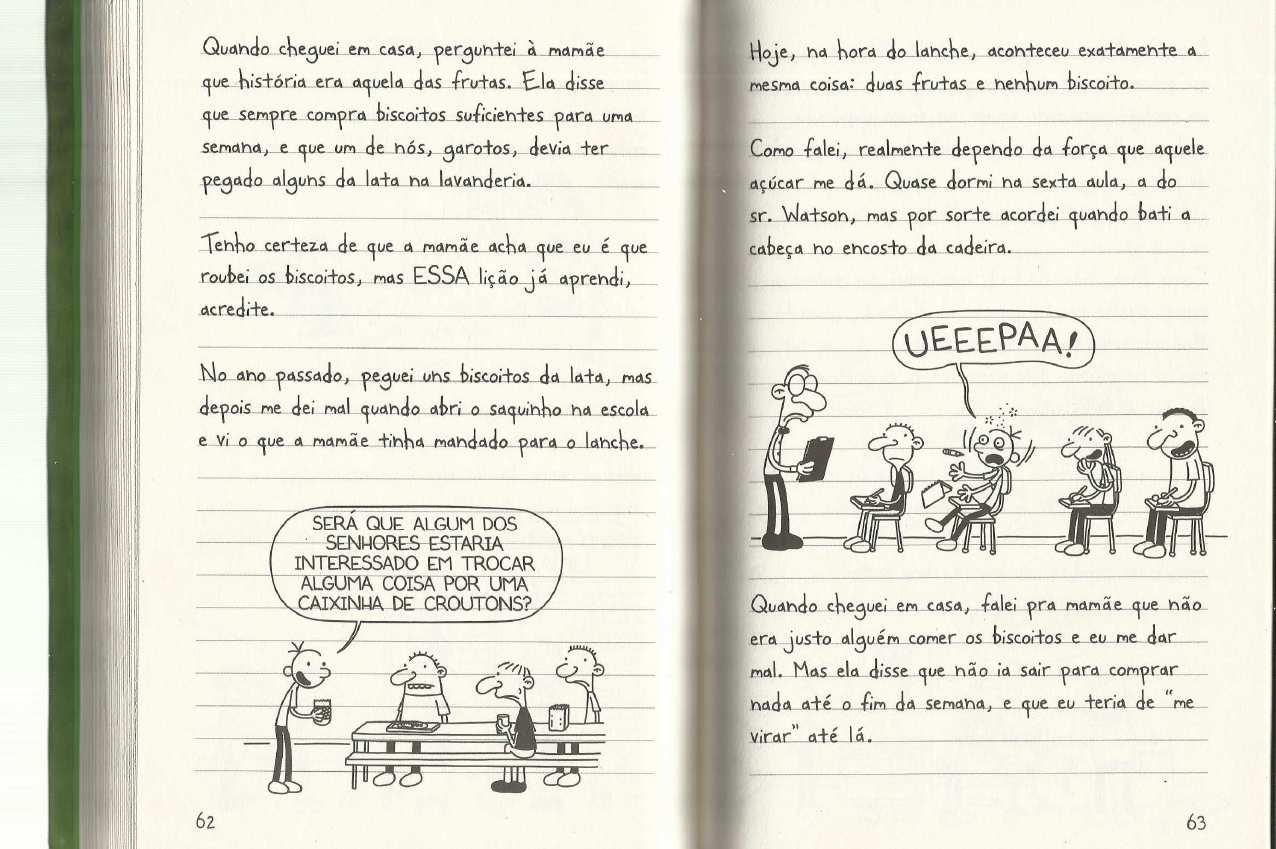 Quando cheguei em casa, perguntei à mamãe
que história era aquela das frutas. Ela disse
que sempre compra biscoitos suficientes para uma
semana, e que um de nós, garotos, devia ter
pegado alguns da lata na lavanderia.
Tenho certeza de que a mamãe acha que eu é que
roubei os biscoitos, mas ESSA lição já aprendi,
acredite.
No ano passado, peguei uns biscoitos da lata, mas
depois me dei mal quando abri o saquinho na escola
e vi o que a mamãe tinha mandado para o lanche.
SERÁ QUE ALGUM DOS
SENHORES ESTARIA
INTERESSADO EM TROCAR
ALGUMA COISA POR UMA
CAIXINHA DE CROUTONS?
62
Hoje, na hora do lanche, aconteceu exatamente a
mesma coisa: duas frutas e nenhum biscoito.
Como falei, realmente dependo da força que aquele
açúcar me dá. Quase dormi na sexta aula, a do
sr. Watson, mas por sorte acordei quando bati a
cabeça no encosto da cadeira.
UEEEPAA!
Quando cheguei em casa, falei pra mamãe que não
era justo alguém comer os biscoitos e eu me dar
mal. Mas ela disse que não ia sair para comprar
nada até o fim da semana, e que eu teria de "me
virar" até lá.
63